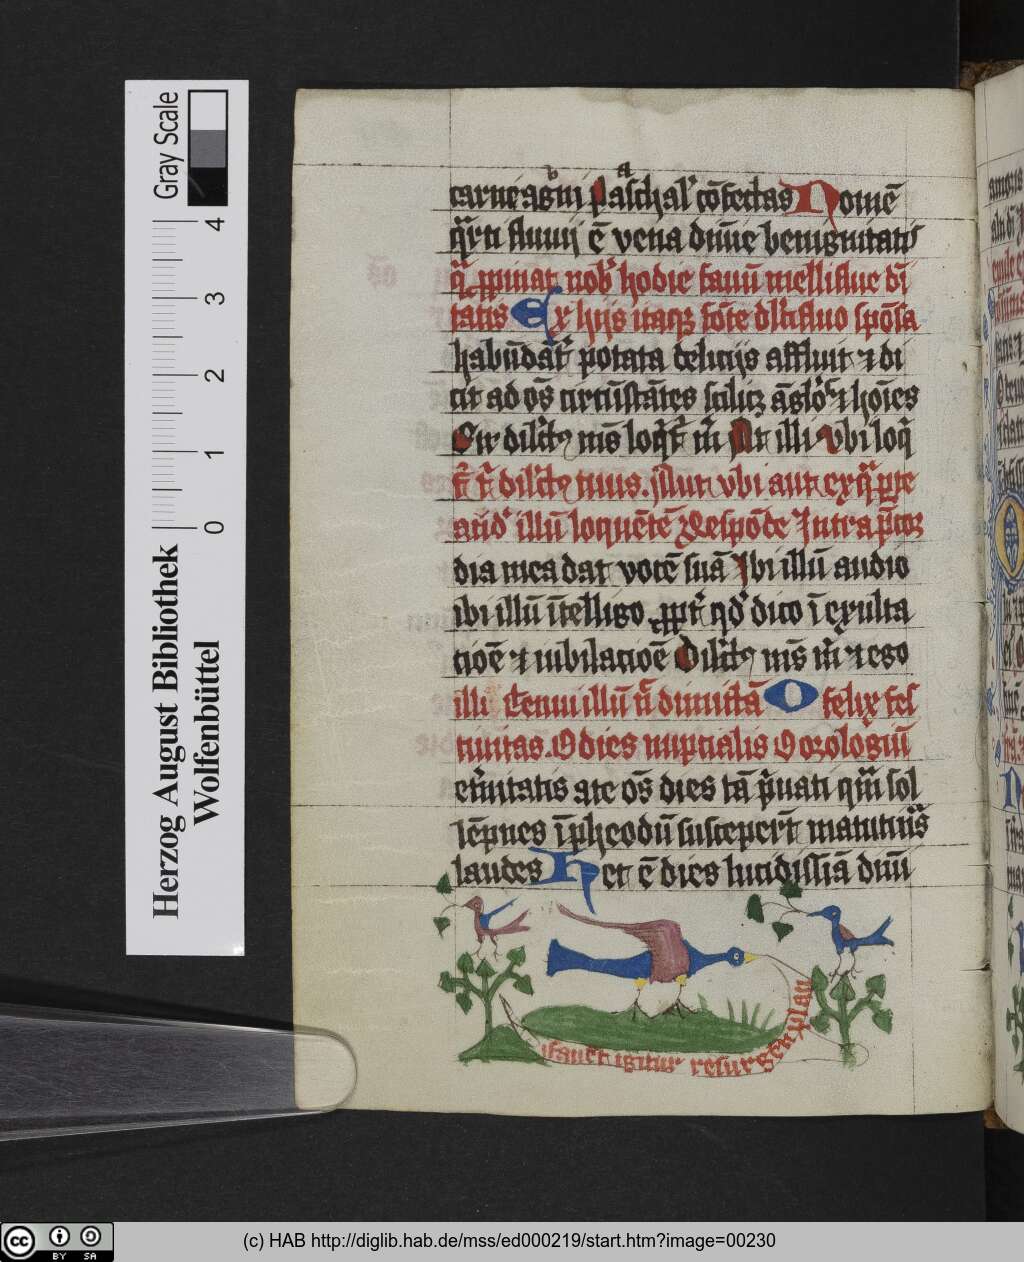 Gray Scale
4
3
2
1
0
Herzog August Bibliothek
Wolfenbüttel
carne agni paschal' cōfectas Nomē
q̄rti fluuij ē vena diuīe benignitatis
q̄ ꝓpinat nob' hodie fauū melliflue dī
tatis Ex hijs itaqꝫ fōte dl'cifluo spōsa
habūdāt' potata delicijs affluit ⁊ di
cit ad oōs circūstātes scilicꝫ āglōs ⁊ hoīes
Sic dilc̄tꝰ mꝰs loq̄t' m̄ At illi Vbi loq̄
t' t' dilc̄tꝰ tuus. illut vbi aut ex q̄ p̄te
audis illū loquētē Respōde Intra p̄cor
dia mea dat vocē suā Ibi illū audio
ibi illū ītelligo ꝓpt' qd' dico ī exulta
tioē ⁊ iubilacioē Dilc̄tꝰ mꝰs m̄ ⁊ ego
illi Tenui illū n̄ dimittā O felix fes
tiuitas. O dies nuptialis O orologiū
et'nitatis a te oōs dies tā p̄uati q̄m sol
lēpnes ī pheodū suscepert̄ matutinas
laudes Hec ē dies lucidissīa diuī
fauet igitur resurgen plau
(c) HAB http://diglib.hab.de/mss/ed000219/start.htm?image=00230
cc BY SA